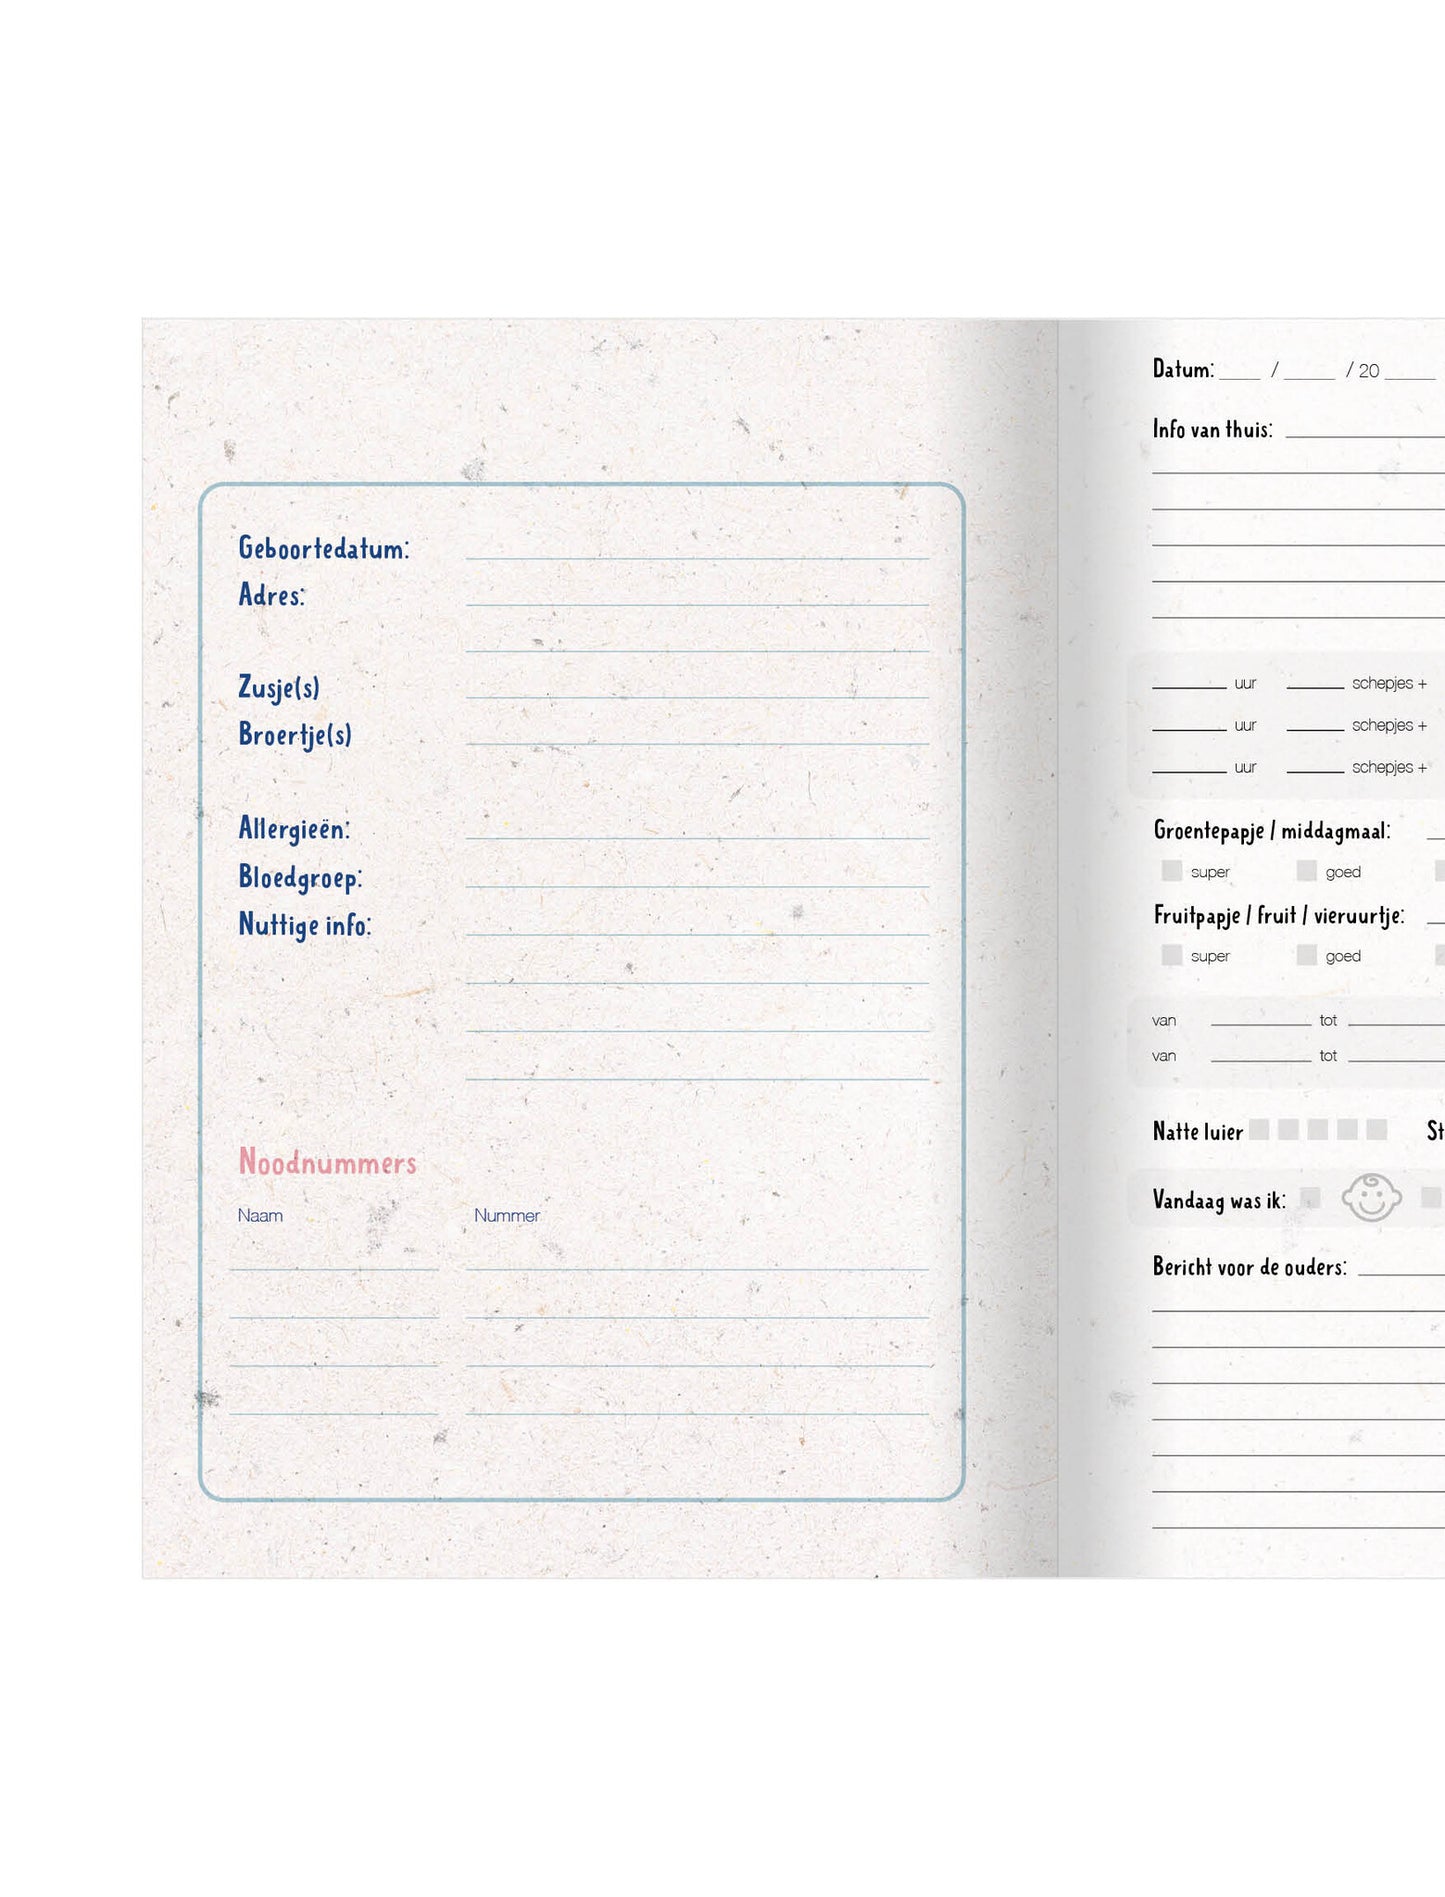 Geboortedatum:
Adres:
Zusje(s)
Broertje(s)
Allergieën:
Bloedgroep:
Nuttige info:
Noodnummers
Naam Nummer
Datum: / / 20
Info van thuis:
uur schepjes +
uur schepjes +
uur schepjes +
Groentepapje / middagmaal:
super goed
Fruitpapje / fruit / vieruurtje:
super goed
van tot
van tot
Natte luier
Vandaag was ik:
Bericht voor de ouders: